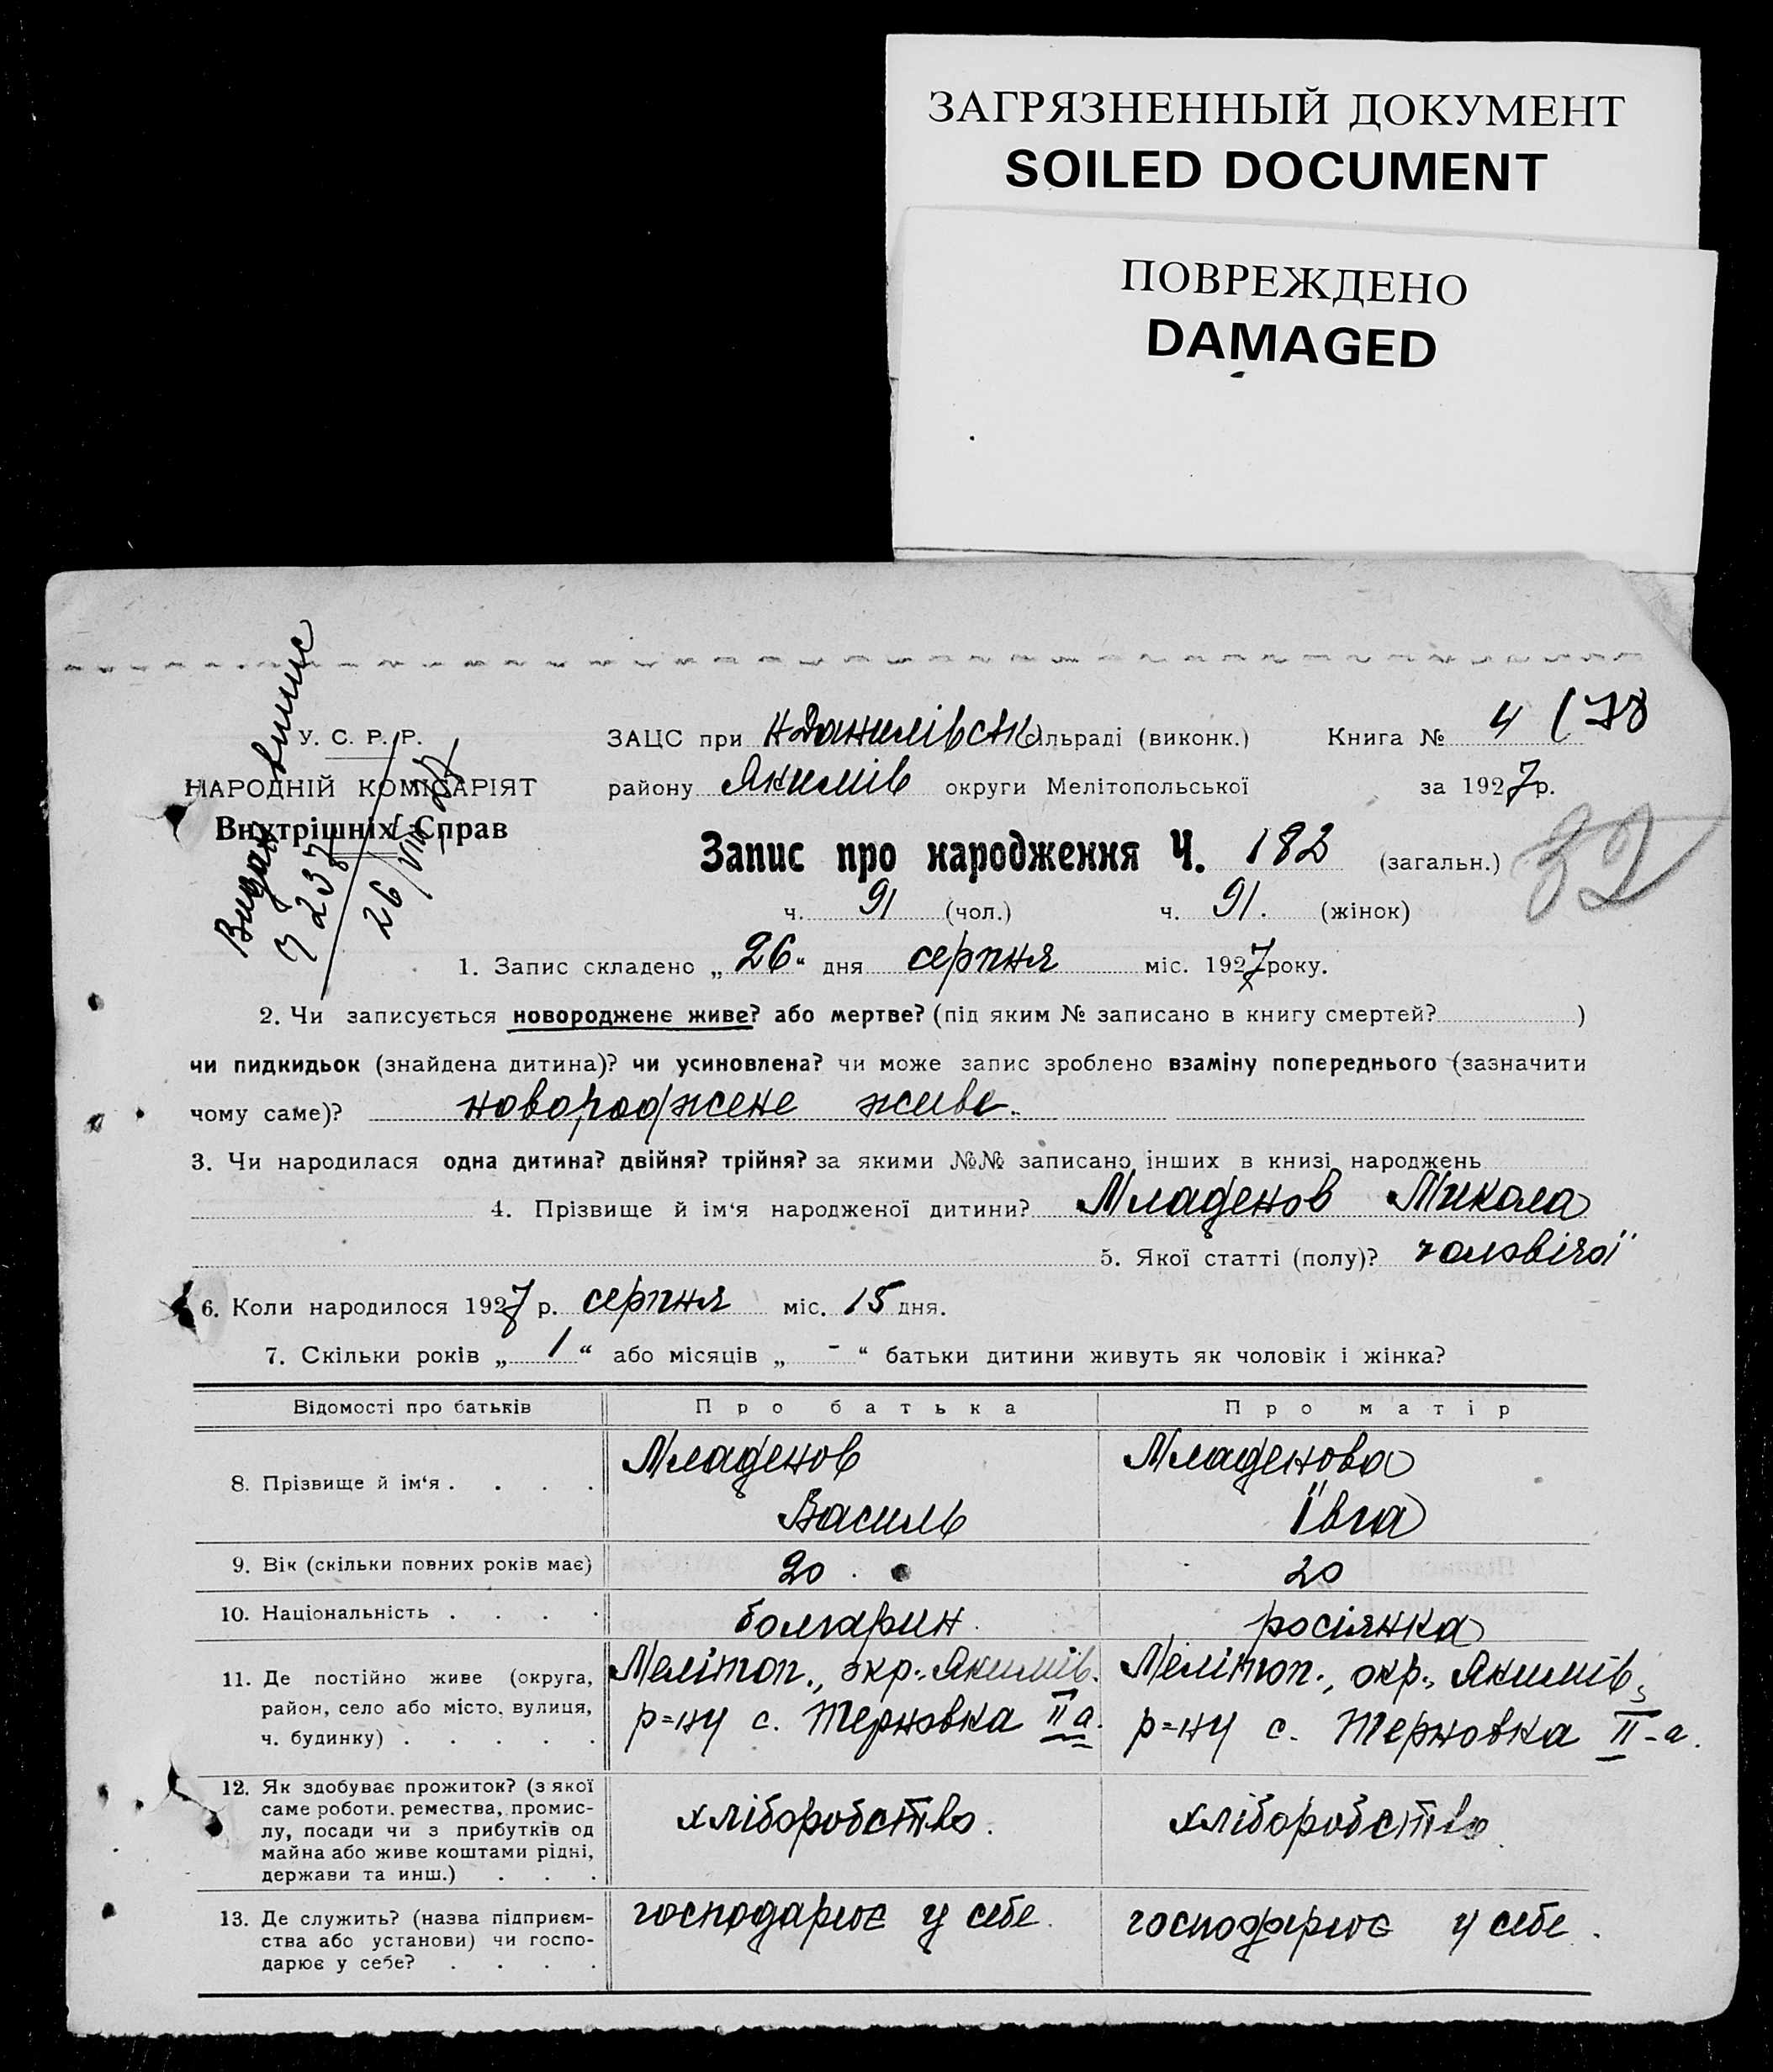 ЗАГРЯЗНЕННЫЙ ДОКУМЕНТ
SOILED DOCUMENT
ПОВРЕЖДЕНО
DAMAGED
Видан випис
У. С. Р. Р.
НАРОДНІЙ КОМІСАРІЯТ
Внутрішніх Справ
ЗАЦС при Н Данилівськ ільраді (виконк.) Книга № 4 (78
району Якимів округи Мелітопольської за 1927 р.
Запис про народження Ч. 182 (загальн.) 82
ч. 91 (чол.) ч. 91. (жінок)
1. Запис складено „ 26 “ дня серпня міс. 1927 року.
2. Чи записується новороджене живе? або мертве? (під яким № записано в книгу смертей? )
чи пидкидьок (знайдена дитина)? чи усиновлена? чи може запис зроблено взаміну попереднього (зазначити
чому саме)? новороджене живе
3. Чи народилася одна дитина? двійня? трійня? за якими №№ записано інших в книзі народжень
4. Прізвище й ім‘я народженої дитини? Младенов Микола
5. Якої статті (полу)? чоловічої
6. Коли народилося 1927 р. серпня міс. 15 дня.
7. Скільки років „ 1 “ або місяців „ - “ батьки дитини живуть як чоловік і жінка?
Відомості про батьків Про батька Про матір
8. Прізвище й ім‘я . . . . Младенов Младенова
Василь Ївга
9. Вік (скільки повних років має) 20 20
10. Національність . . . . болгарин росіянка
11. Де постійно живе (округа, Мелітоп., окр., Якимів. Мелітоп., окр., Якимів,
район, село або місто, вулиця, р=ну с. Терновка ІІ а. р=ну с. Терновка ІІ-а.
ч. будинку) . . . . .
12. Як здобуває прожиток? (з якої
саме роботи, ремества, промис-
лу, посади чи з прибутків од хліборобство. хліборобство
майна або живе коштами рідні,
держави та инш.) . . .
13. Де служить? (назва підприєм- господарює у себе. господарює у себе.
ства або установи) чи госпо-
дарює у себе? . . . .